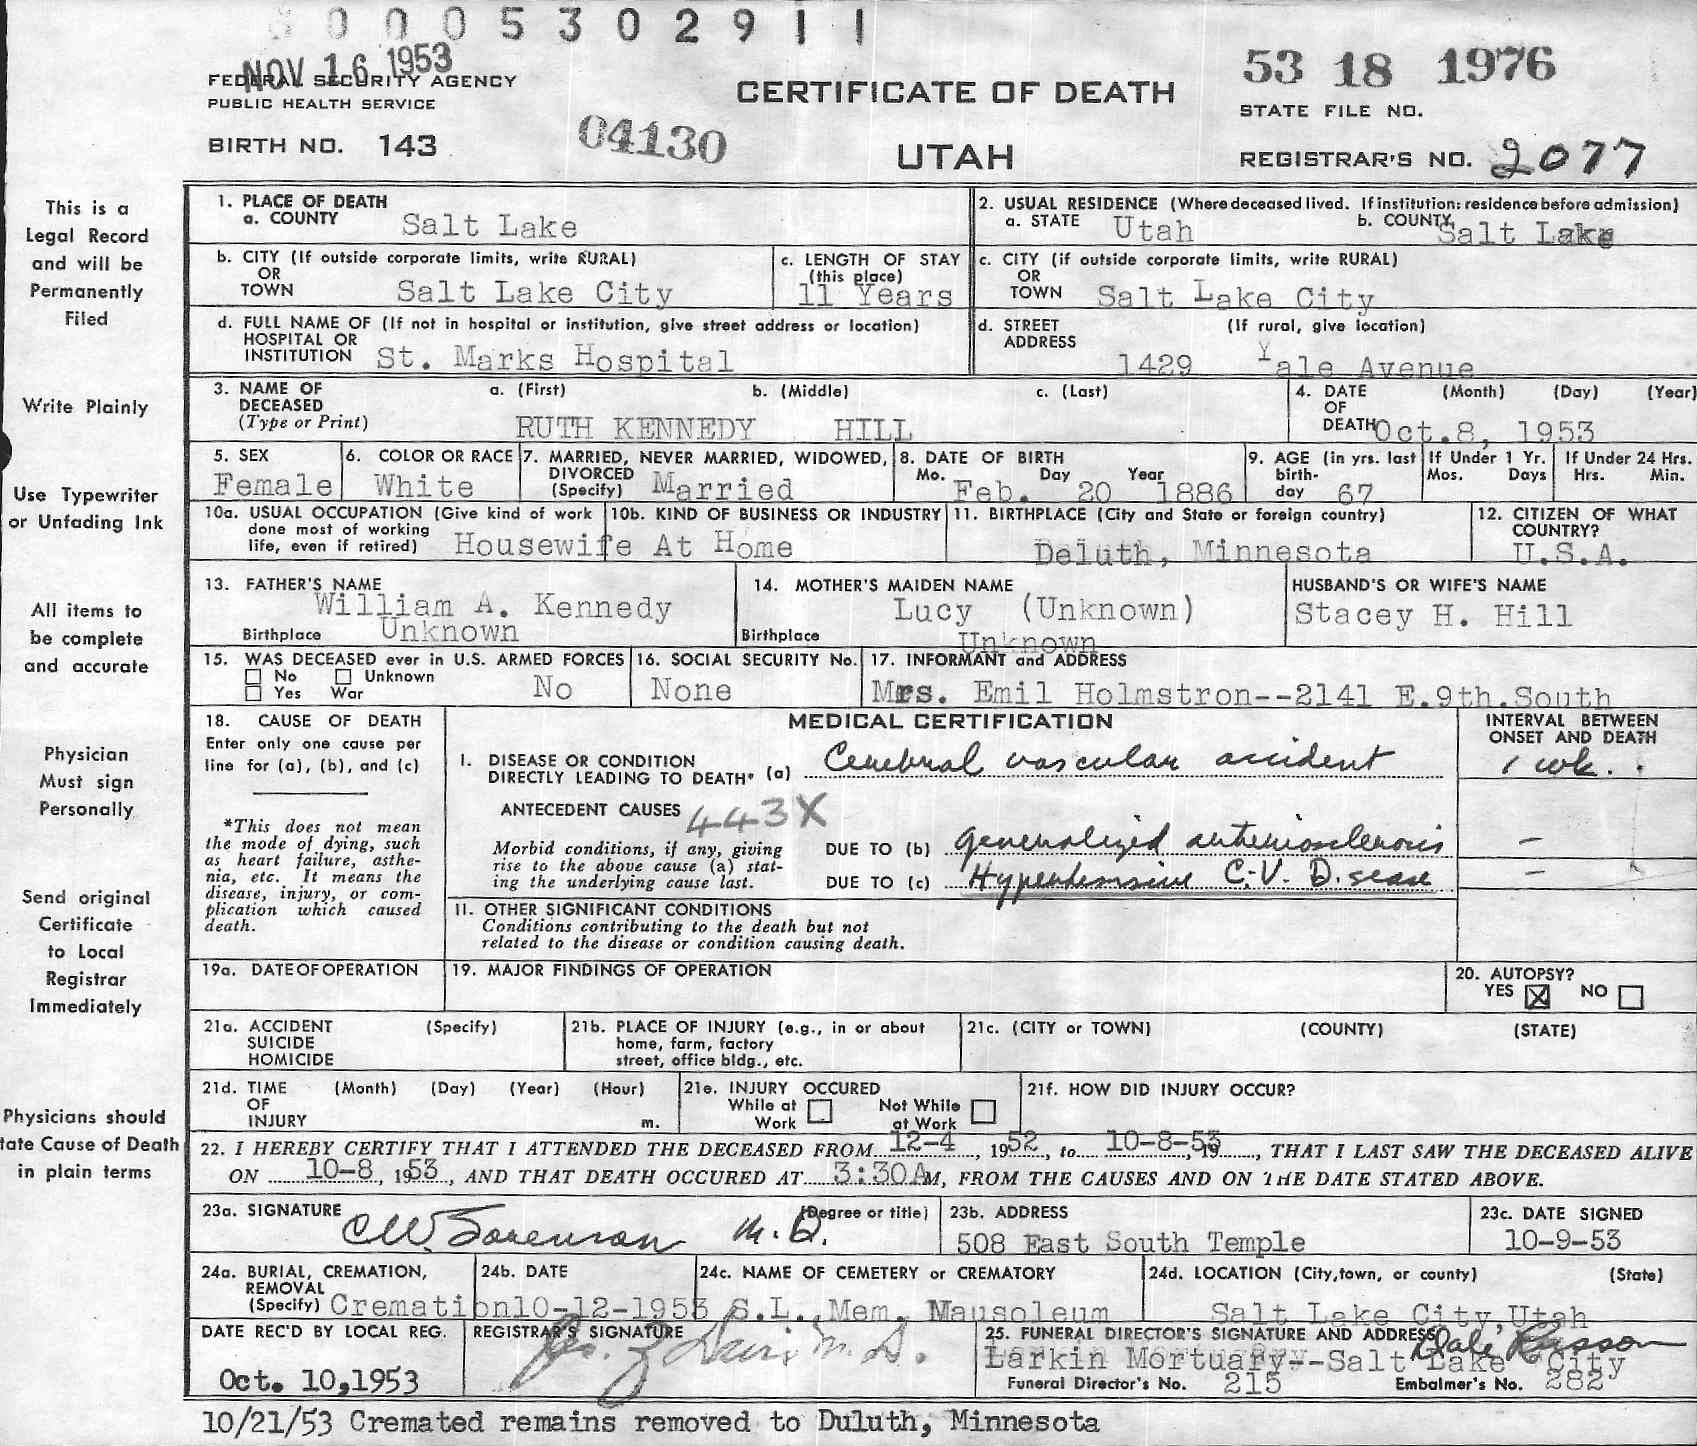 0 0 0 5 3 0 2 9 1 1
NOV 16 1953
FEDERAL SECURITY AGENCY
PUBLIC HEALTH SERVICE
BIRTH NO. 143
04130
CERTIFICATE OF DEATH
UTAH
53 18 1976
STATE FILE NO.
REGISTRAR'S NO. 2077
This is a
Legal Record
and will be
Permanently
Filed
Write Plainly
Use Typewriter
or Unfading Ink
All items to
be complete
and accurate
Physician
Must sign
Personally
Send original
Certificate
to Local
Registrar
Immediately
Physicians should
tate Cause of Death
in plain terms
1. PLACE OF DEATH
a. COUNTY Salt Lake
2. USUAL RESIDENCE (Where deceased lived. If institution: residence before admission)
a. STATE Utah b. COUNTY Salt Lake
b. CITY (If outside corporate limits, write RURAL)
OR
TOWN Salt Lake City
c. LENGTH OF STAY
(this place)
11 Years
c. CITY (if outside corporate limits, write RURAL)
OR
TOWN Salt Lake City
d. FULL NAME OF (If not in hospital or institution, give street address or location)
HOSPITAL OR
INSTITUTION St. Marks Hospital
d. STREET (If rural, give location)
ADDRESS
1429 Yale Avenue
3. NAME OF a. (First) b. (Middle) c. (Last)
DECEASED
(Type or Print) RUTH KENNEDY HILL
4. DATE (Month) (Day) (Year)
OF
DEATH Oct.8, 1953
5. SEX
Female
6. COLOR OR RACE
White
7. MARRIED, NEVER MARRIED, WIDOWED,
DIVORCED
(Specify) Married
8. DATE OF BIRTH
Mo. Day Year
Feb. 20 1886
9. AGE (in yrs. last
birth-
day 67
If Under 1 Yr.
Mos. Days
If Under 24 Hrs.
Hrs. Min.
10a. USUAL OCCUPATION (Give kind of work
done most of working
life, even if retired) Housewife
10b. KIND OF BUSINESS OR INDUSTRY
At Home
11. BIRTHPLACE (City and State or foreign country)
Deluth, Minnesota
12. CITIZEN OF WHAT
COUNTRY?
U.S.A.
13. FATHER'S NAME
William A. Kennedy
Birthplace Unknown
14. MOTHER'S MAIDEN NAME
Lucy (Unknown)
Birthplace Unknown
HUSBAND'S OR WIFE'S NAME
Stacey H. Hill
15. WAS DECEASED ever in U.S. ARMED FORCES
No Unknown
Yes War No
16. SOCIAL SECURITY No.
None
17. INFORMANT and ADDRESS
Mrs. Emil Holmstron--2141 E.9th.South
18. CAUSE OF DEATH
Enter only one cause per
line for (a), (b), and (c)
*This does not mean
the mode of dying, such
as heart failure, asthe-
nia, etc. It means the
disease, injury, or com-
plication which caused
death.
MEDICAL CERTIFICATION
INTERVAL BETWEEN
ONSET AND DEATH
I. DISEASE OR CONDITION
DIRECTLY LEADING TO DEATH* (a) Cerebral vascular accident 1 wk.
ANTECEDENT CAUSES 443X
Morbid conditions, if any, giving
rise to the above cause (a) stat-
ing the underlying cause last.
DUE TO (b) generalized arteriosclerosis –
DUE TO (c) Hypertensive C.V. Disease –
II. OTHER SIGNIFICANT CONDITIONS
Conditions contributing to the death but not
related to the disease or condition causing death.
19a. DATE OF OPERATION
19. MAJOR FINDINGS OF OPERATION
20. AUTOPSY?
YES X NO
21a. ACCIDENT (Specify)
SUICIDE
HOMICIDE
21b. PLACE OF INJURY (e.g., in or about
home, farm, factory
street, office bldg., etc.
21c. (CITY or TOWN) (COUNTY) (STATE)
21d. TIME (Month) (Day) (Year) (Hour)
OF
INJURY m.
21e. INJURY OCCURED
While at Not While
Work at Work
21f. HOW DID INJURY OCCUR?
22. I HEREBY CERTIFY THAT I ATTENDED THE DECEASED FROM 12-4, 1952, to 10-8-53, 19, THAT I LAST SAW THE DECEASED ALIVE
ON 10-8, 1953, AND THAT DEATH OCCURED AT 3:30AM, FROM THE CAUSES AND ON THE DATE STATED ABOVE.
23a. SIGNATURE (Degree or title)
CW. Sorenson M.D.
23b. ADDRESS
508 East South Temple
23c. DATE SIGNED
10-9-53
24a. BURIAL, CREMATION,
REMOVAL
(Specify) Cremation
24b. DATE
10-12-1953
24c. NAME OF CEMETERY or CREMATORY
S.L. Mem. Mausoleum
24d. LOCATION (City, town, or county) (State)
Salt Lake City, Utah
DATE REC'D BY LOCAL REG.
Oct. 10,1953
REGISTRAR'S SIGNATURE
M.D.
25. FUNERAL DIRECTOR'S SIGNATURE AND ADDRESS Dale Russon
Larkin Mortuary--Salt Lake City
Funeral Director's No. 215 Embalmer's No. 282
10/21/53 Cremated remains removed to Duluth, Minnesota